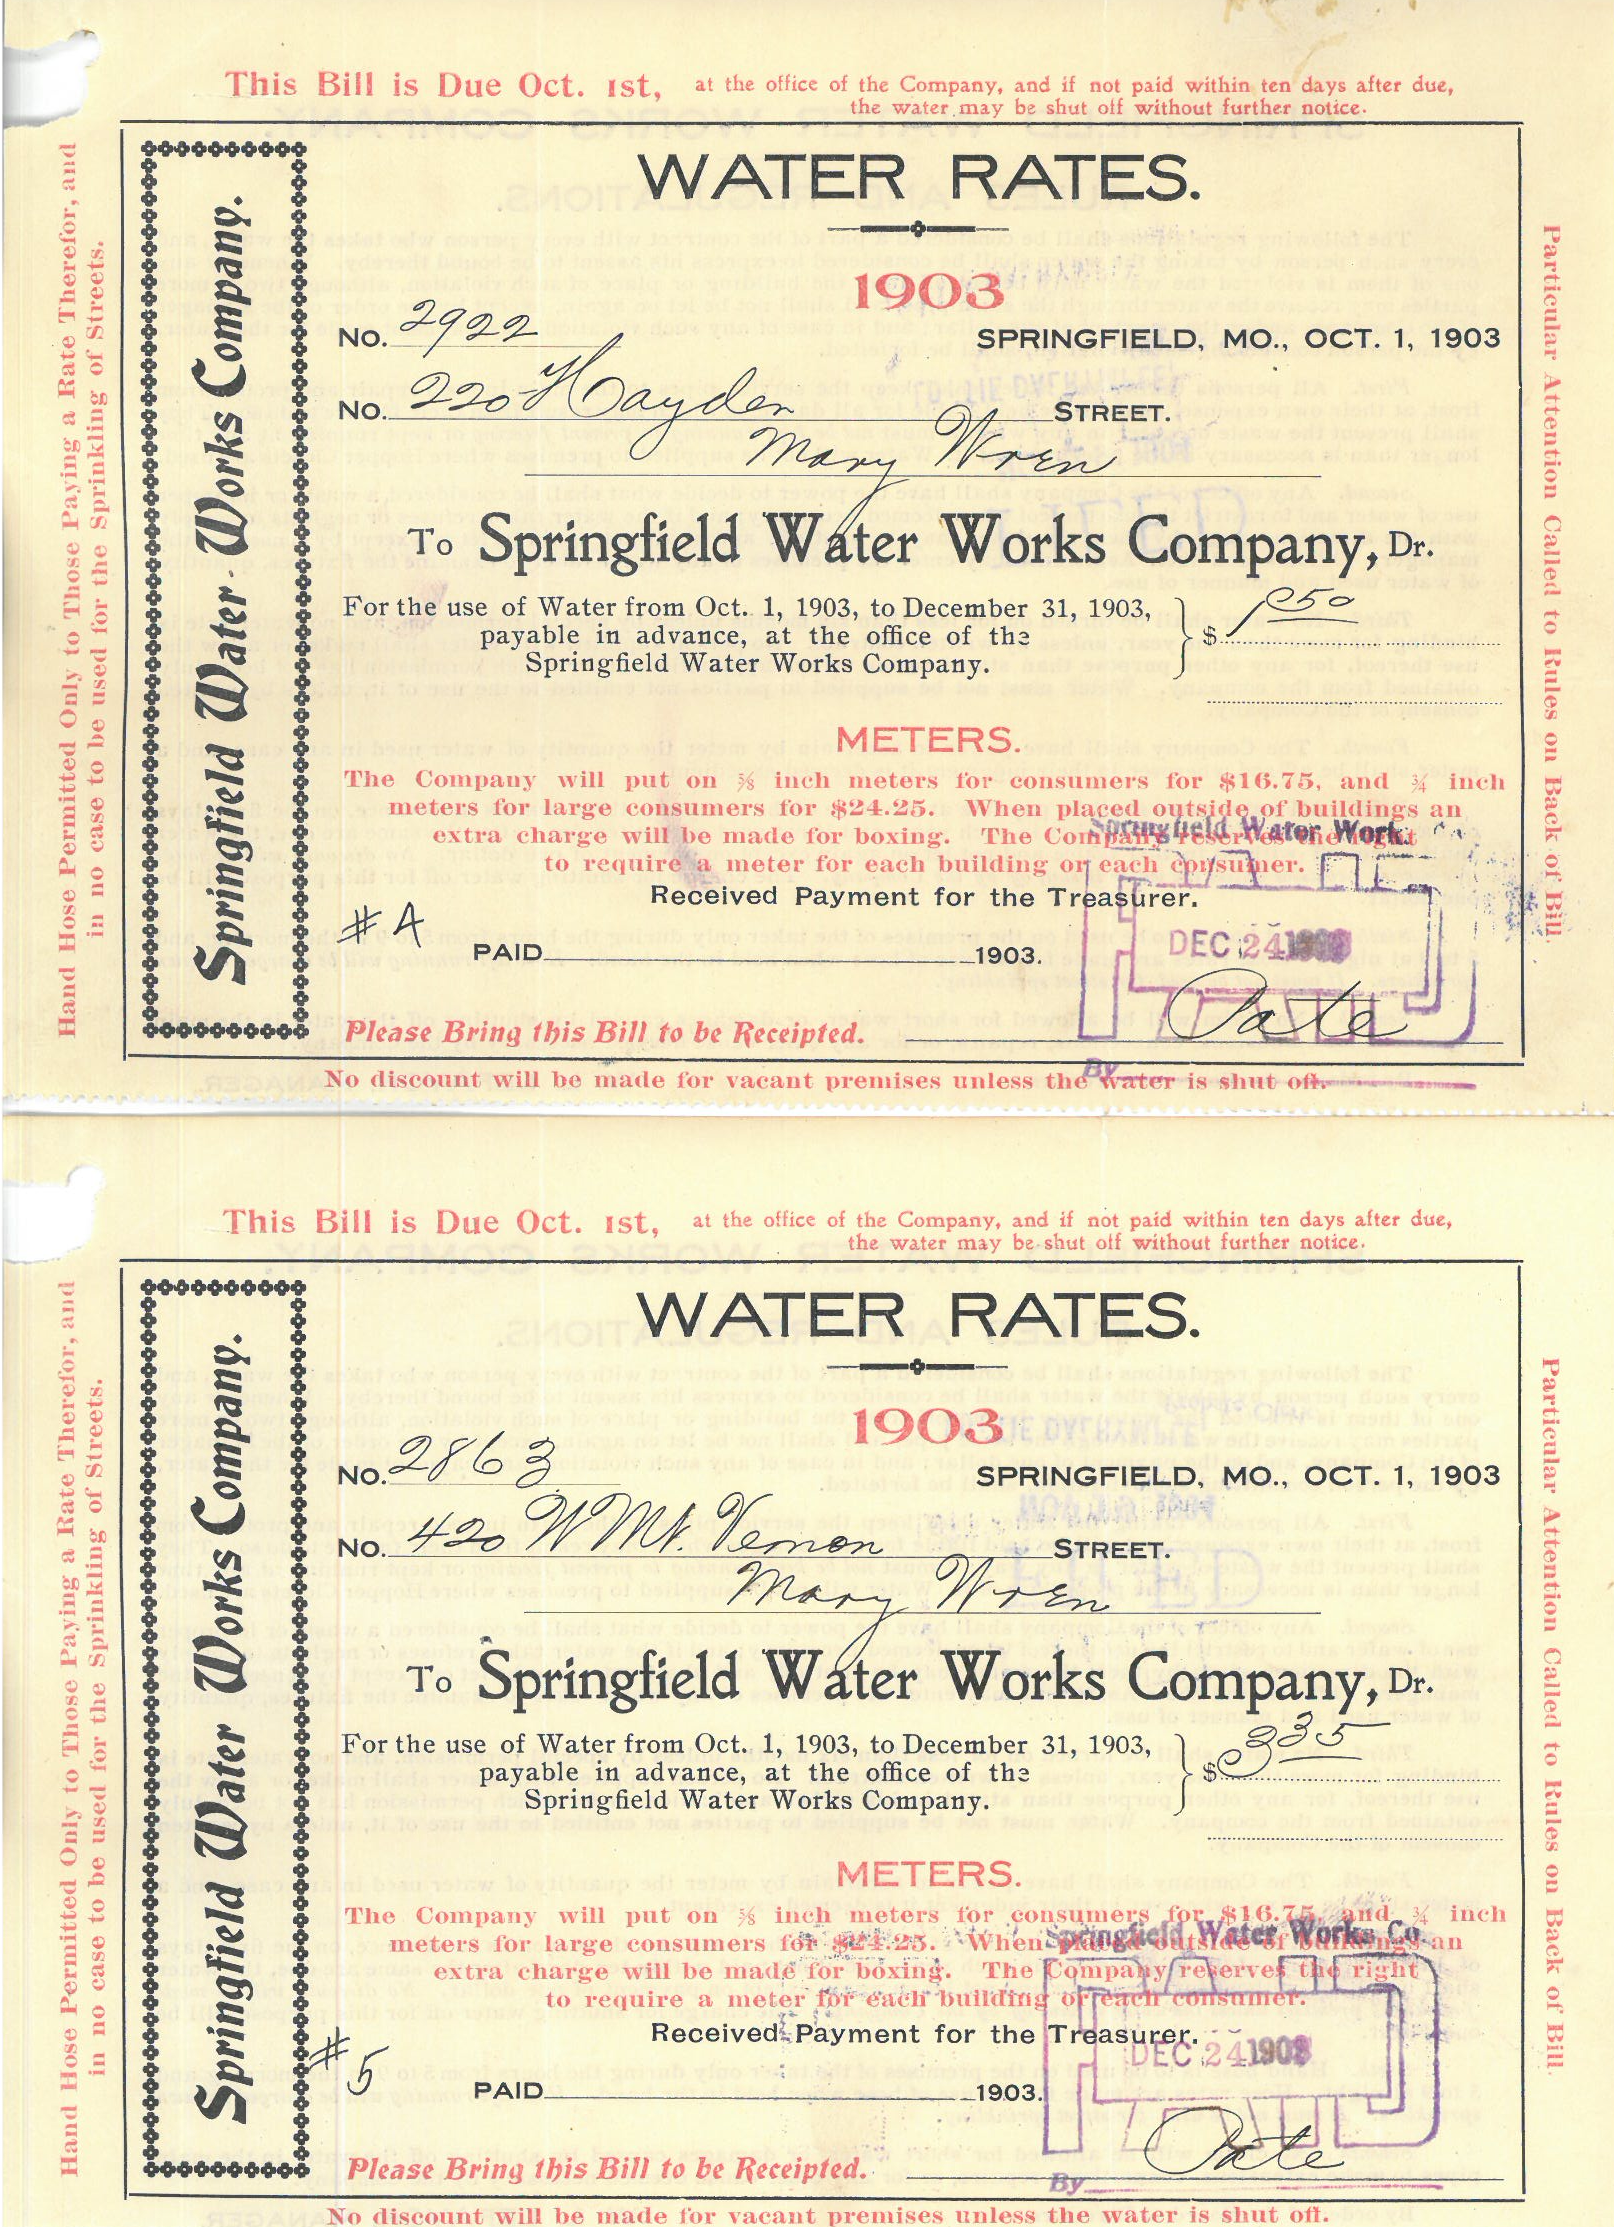 This Bill is Due Oct. 1st, at the office of the Company, and if not paid within ten days after due,
the water may be shut off without further notice.
Hand Hose Permitted Only to Those Paying a Rate Therefor, and
in no case to be used for the Sprinkling of Streets.
Springfield Water Works Company.
WATER RATES.
1903
No. 2922 SPRINGFIELD, MO., OCT. 1, 1903
No. 220 Hayden STREET.
Mary Wren
To Springfield Water Works Company, Dr.
For the use of Water from Oct. 1, 1903, to December 31, 1903,
payable in advance, at the office of the
Springfield Water Works Company.
$ 1 50
METERS.
The Company will put on ⅝ inch meters for consumers for $16.75, and ¾ inch
meters for large consumers for $24.25. When placed outside of buildings an
extra charge will be made for boxing. The Company reserves the right
to require a meter for each building or each consumer.
Springfield Water Work. Co.
Received Payment for the Treasurer.
PAID
DEC 24 1903
#4
PAID 1903.
Pate
Please Bring this Bill to be Receipted.
By
No discount will be made for vacant premises unless the water is shut off.
Particular Attention Called to Rules on Back of Bill.
This Bill is Due Oct. 1st, at the office of the Company, and if not paid within ten days after due,
the water may be shut off without further notice.
Hand Hose Permitted Only to Those Paying a Rate Therefor, and
in no case to be used for the Sprinkling of Streets.
Springfield Water Works Company.
WATER RATES.
1903
No. 2863 SPRINGFIELD, MO., OCT. 1, 1903
No. 420 W Mt. Vernon STREET.
Mary Wren
To Springfield Water Works Company, Dr.
For the use of Water from Oct. 1, 1903, to December 31, 1903,
payable in advance, at the office of the
Springfield Water Works Company.
$ 3 35
METERS.
The Company will put on ⅝ inch meters for consumers for $16.75, and ¾ inch
meters for large consumers for $24.25. When placed outside of buildings an
extra charge will be made for boxing. The Company reserves the right
to require a meter for each building or each consumer.
Springfield Water Works Co.
Received Payment for the Treasurer.
PAID
DEC 24 1903
#5
PAID 1903.
Pate
Please Bring this Bill to be Receipted.
By
No discount will be made for vacant premises unless the water is shut off.
Particular Attention Called to Rules on Back of Bill.